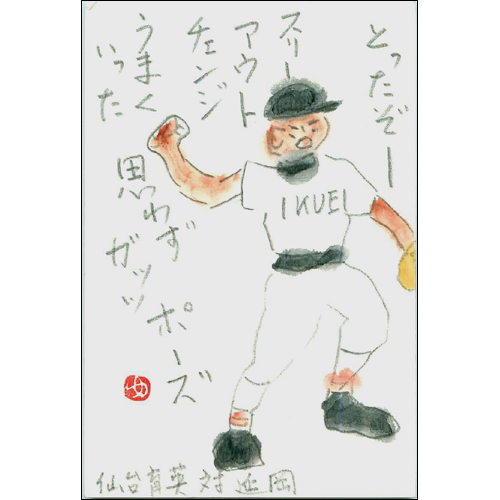 とったぞー
スリー
アウト
チェンジ
うまく
いった
思わず
ガッツ
ポーズ
IKUEI
仙台育英対延岡